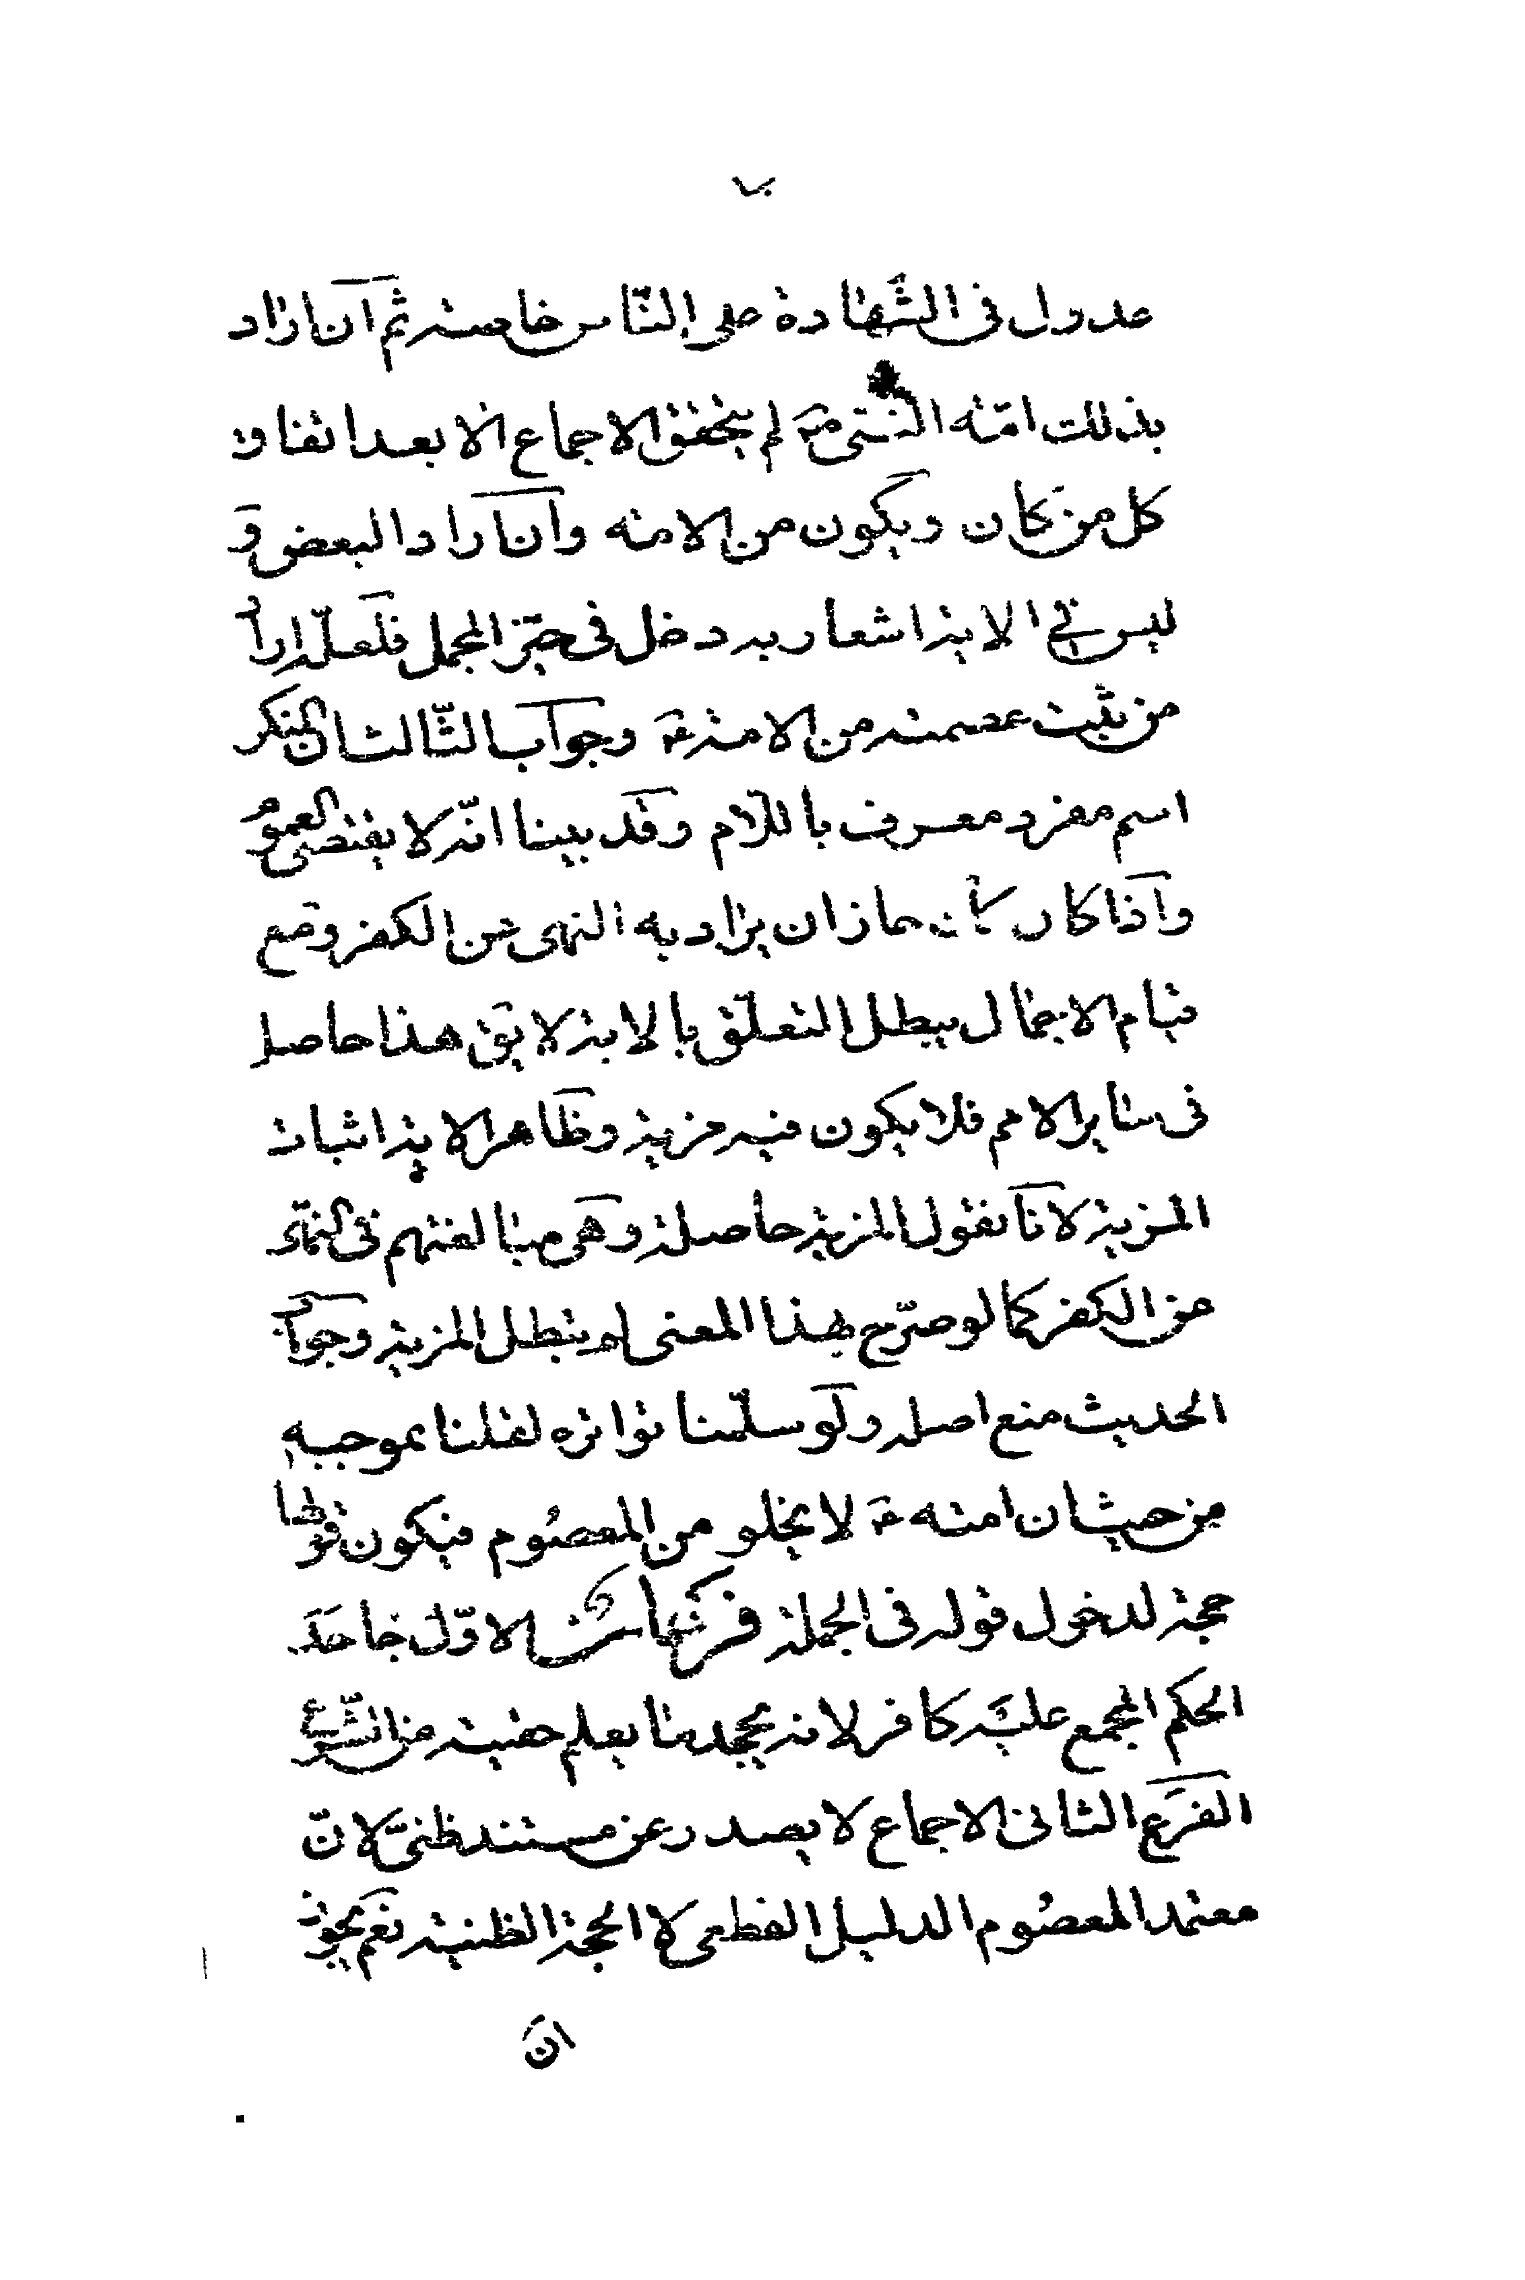 عدول فى الشهادة على الناس خاصة ثم ان اراد
بذلك امّة النبى صم لم يتحقق الاجماع الا بعد اتفاق
كل من كان ويكون من الامة وان اراد البعض و
ليس فى الاية اشعار به دخل فى حيّز المجمل فلعله اراد
من ثبت عصمته من الامة وجواب الثّالث ان المنكر
اسم مفرد معرف باللّام وقد بينا انّه لا يقتضى العموم
واذا كان كان جاز ان يراد به النهى عن الكفر ومع
قيام الاحتمال يبطل التعلّق بالاية لا يق هذا حاصل
فى ساير الامم فلا يكون فيه مزية وظاهر الاية اثبات
المزية لانا نقول المزية حاصلة وهى مبالغتهم فى النهى
عن الكفر كما لو صرّح بهذا المعنى لم يبطل المزية وجواب
الحديث منع اصله ولو سلّمنا تواتره لقلنا بموجبه
من حيث ان امته لا يخلو من المعصوم فيكون قولها
حجة لدخول قوله فى الجملة فرعان الاوّل جاحد
الحكم المجمع عليه كافر لانه يجحد ما يعلم حقيته من الشّرع
الفرع الثانى الاجماع لا يصدر عن مستند ظنىّ لانّ
معتمد المعصوم الدليل القطعى لا الحجة الظنية نعم يجوز
ان